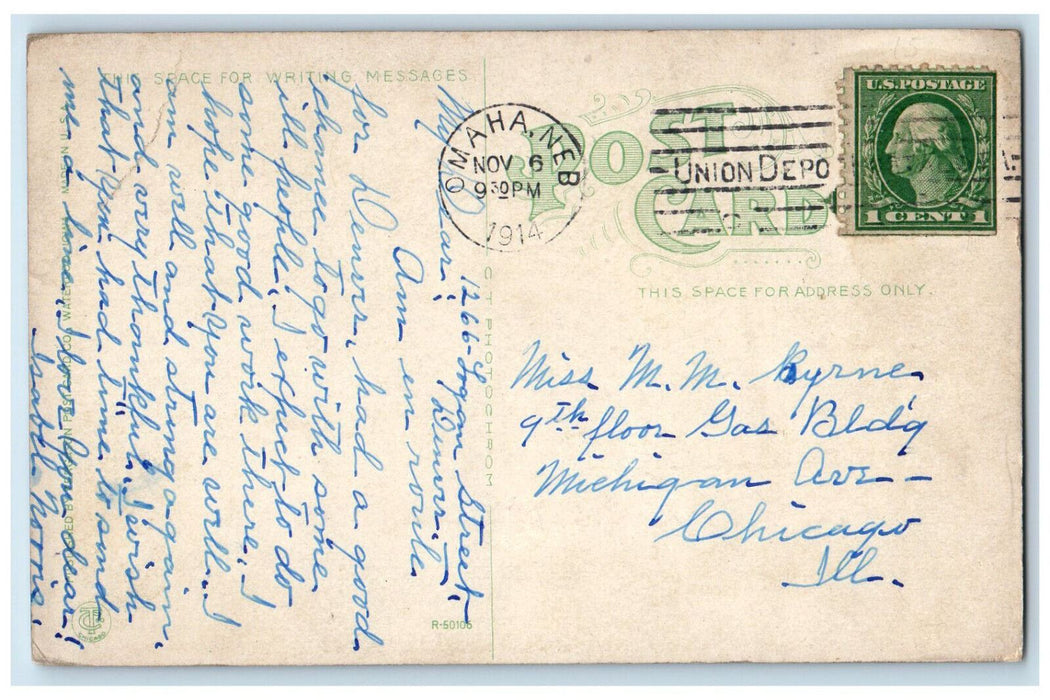 THIS SPACE FOR WRITING MESSAGES
POST CARD
THIS SPACE FOR ADDRESS ONLY.
OMAHA, NEB
NOV 6
9 30 PM
1914
UNION DEPO
U.S. POSTAGE
1 CENT 1
1266-Logan Street,
Denver.
My Dear:
Am en route
for Denver, had a good
chance to go with some
ill people. I expect to do
some good work there. I
hope that you are well. I
am well and strong again
and very thankful. I wish
that you had time to send
me a line, dear!
Miss M. M. Byrne
9th floor Gas Bldg
Michigan Ave-
Chicago
Ill.
C T PHOTOCHROM
R-50106
CHICAGO